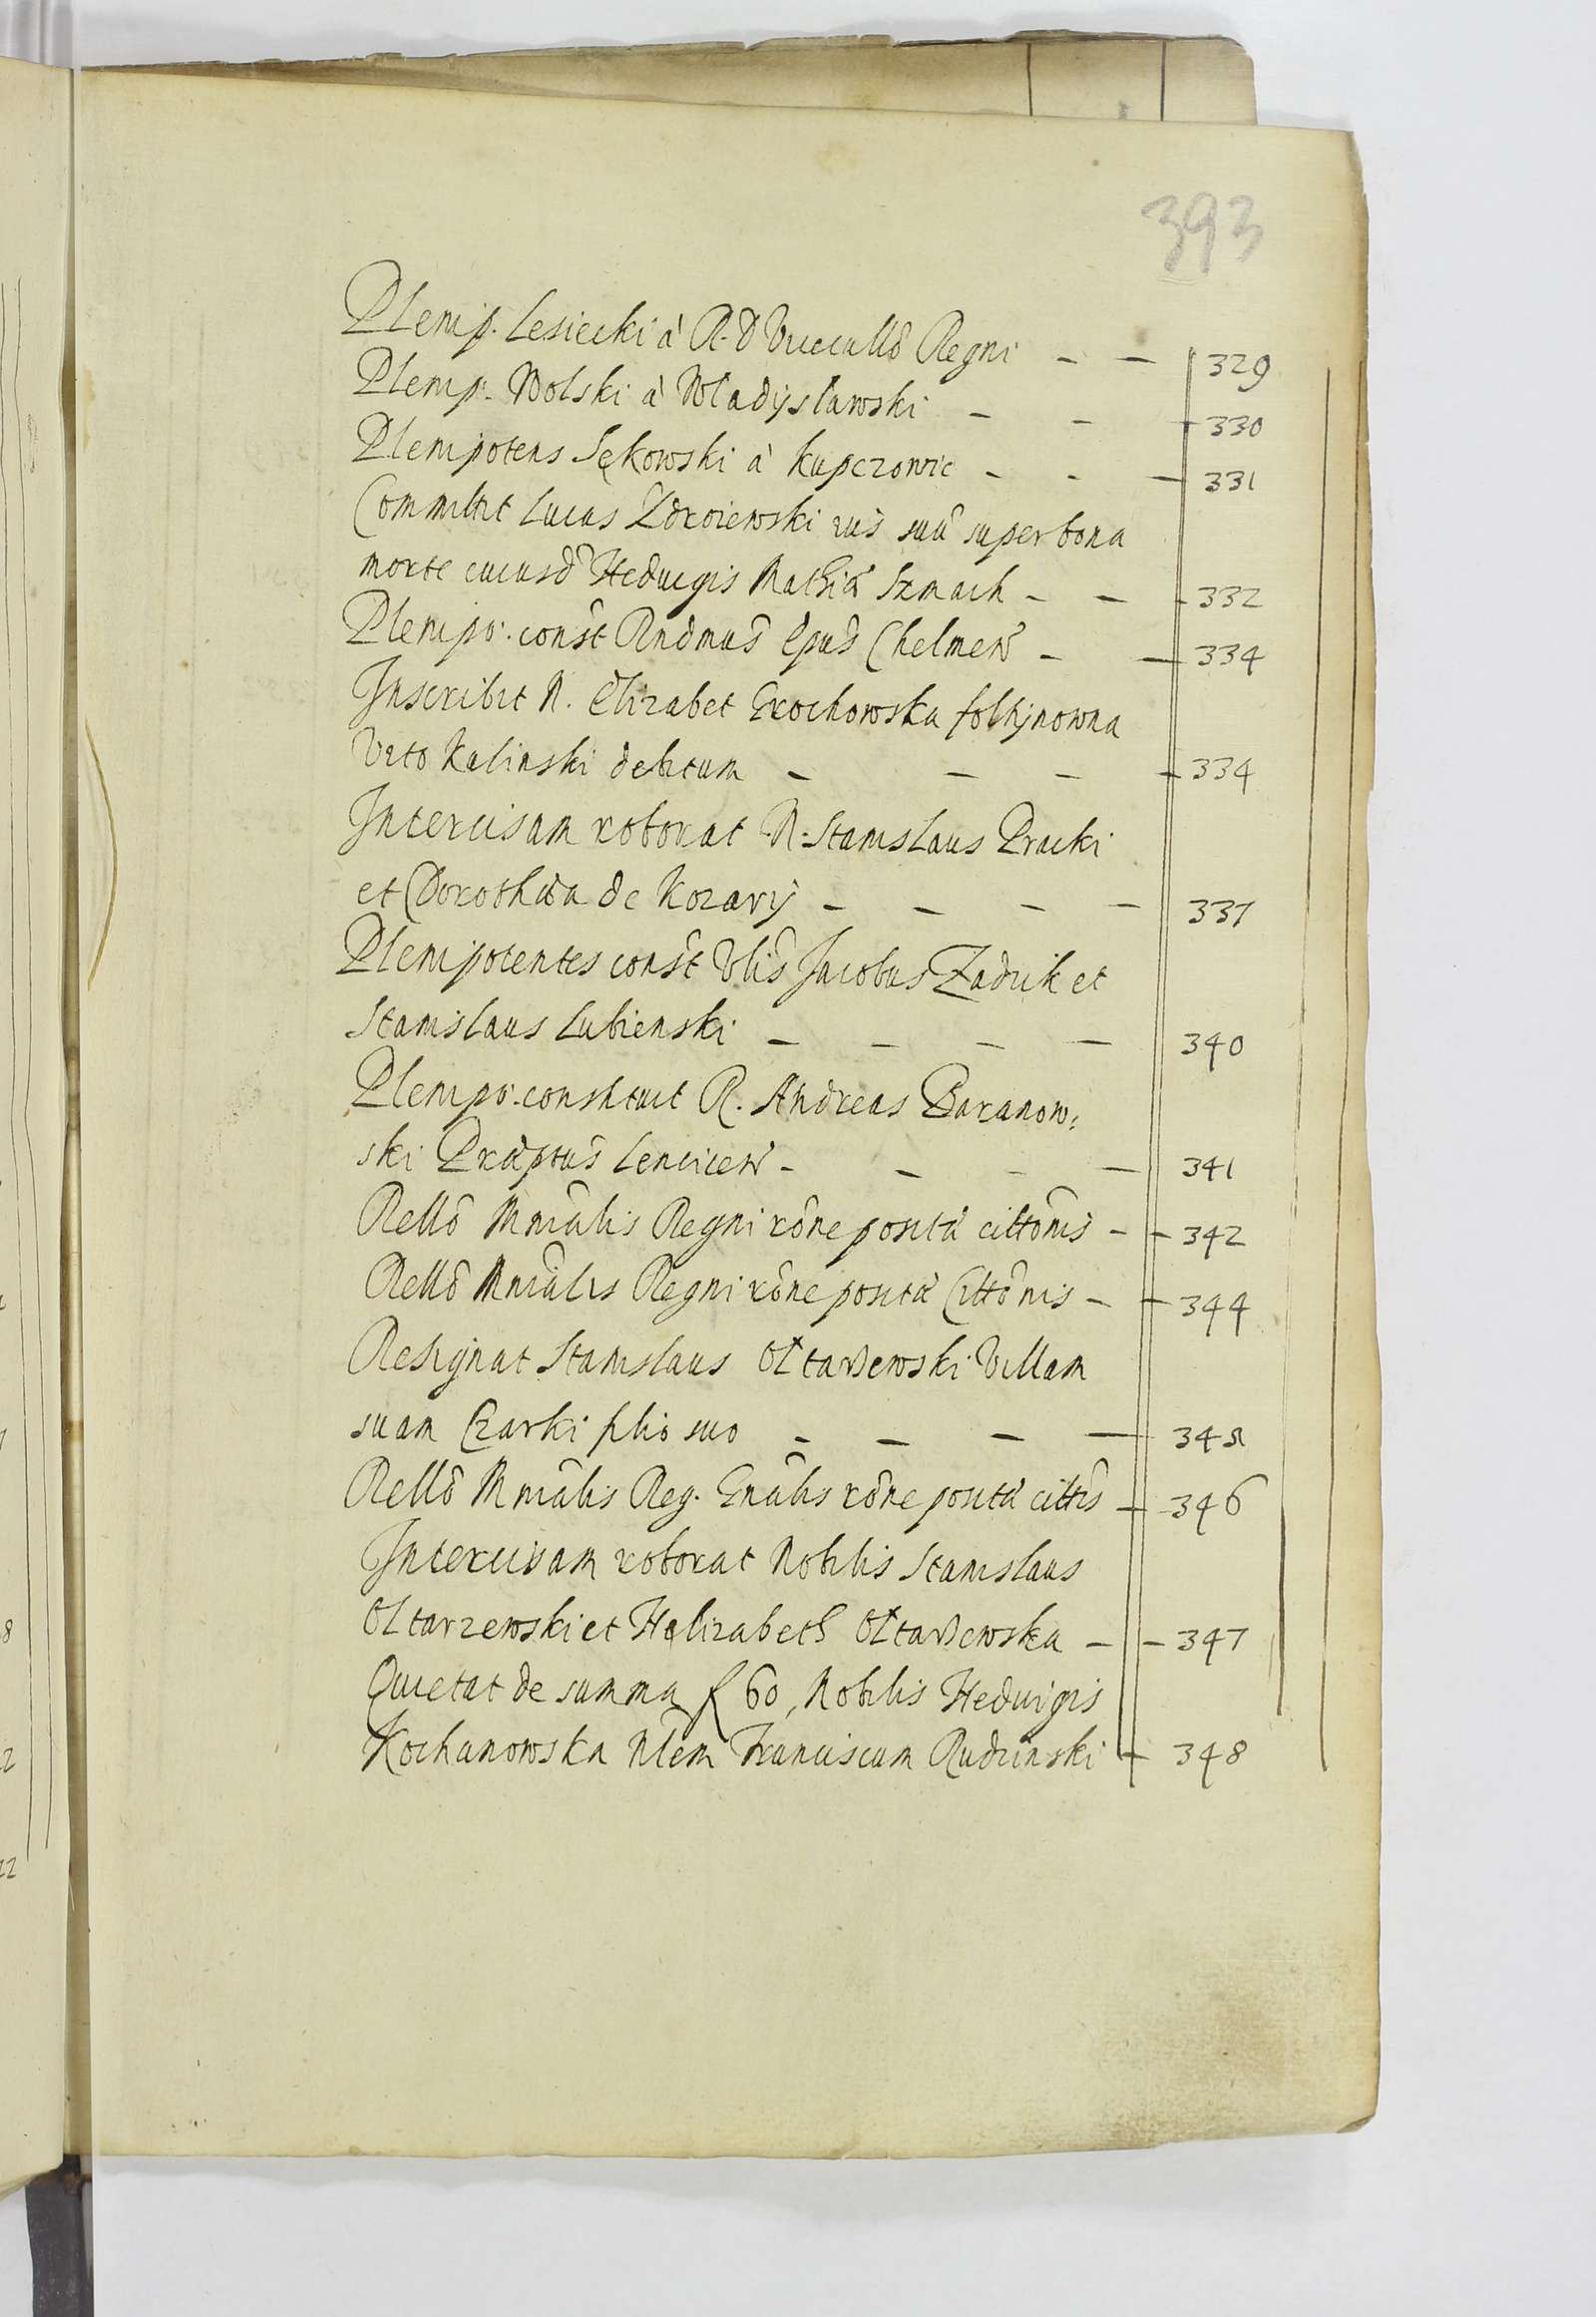 393
Plenip. Lesiecki à R. D Vicecallõ Regni - - 329
Plenip. Wolski à Wladyslawski - - - 330
Plenipotens Sękowski à Kupczowic - - - 331
Committit Lucas Zdroiewski ius suũ super bona
morte cuiusd Hedvigis Mathiæ Szmach - - - 332
Plenipo. const Rndmus Epus Chelmen - - 334
Inscribit N. Elizabet Grochowska
Vito Kalinski debitum - - - - 334
Intercisam roborat N. Stanislaus Pracki
et Dorothæa de Kozary - - - - 337
Plenipotentes const Vlis Jacobus Zadzik et
Stanislaus Lubienski - - - - 340
Plenipo. constituit R. Andreas Baranow:
ski Præptus Lencicen - - - - 341
Rellõ Mniãlis Regni rõne positæ cittõnis - - 342
Rellõ Mniãlis Regni rõne positæ Cittõnis - - 344
Resignat Stanislaus Ołtarzewski Villam
suam Czarki filio suo - - - - 345
Rellõ Mniãlis Reg. Gnãlis rõne positæ cittis - 346
Intercisam roborat Nobilis Stanislaus
Oltarzewski et Helizabeth Ołtarzewska - - 347
Quietat de summa f 60, Nobilis Hedvigis
Kochanowska Nlem Franciscum Rudzinski - 348